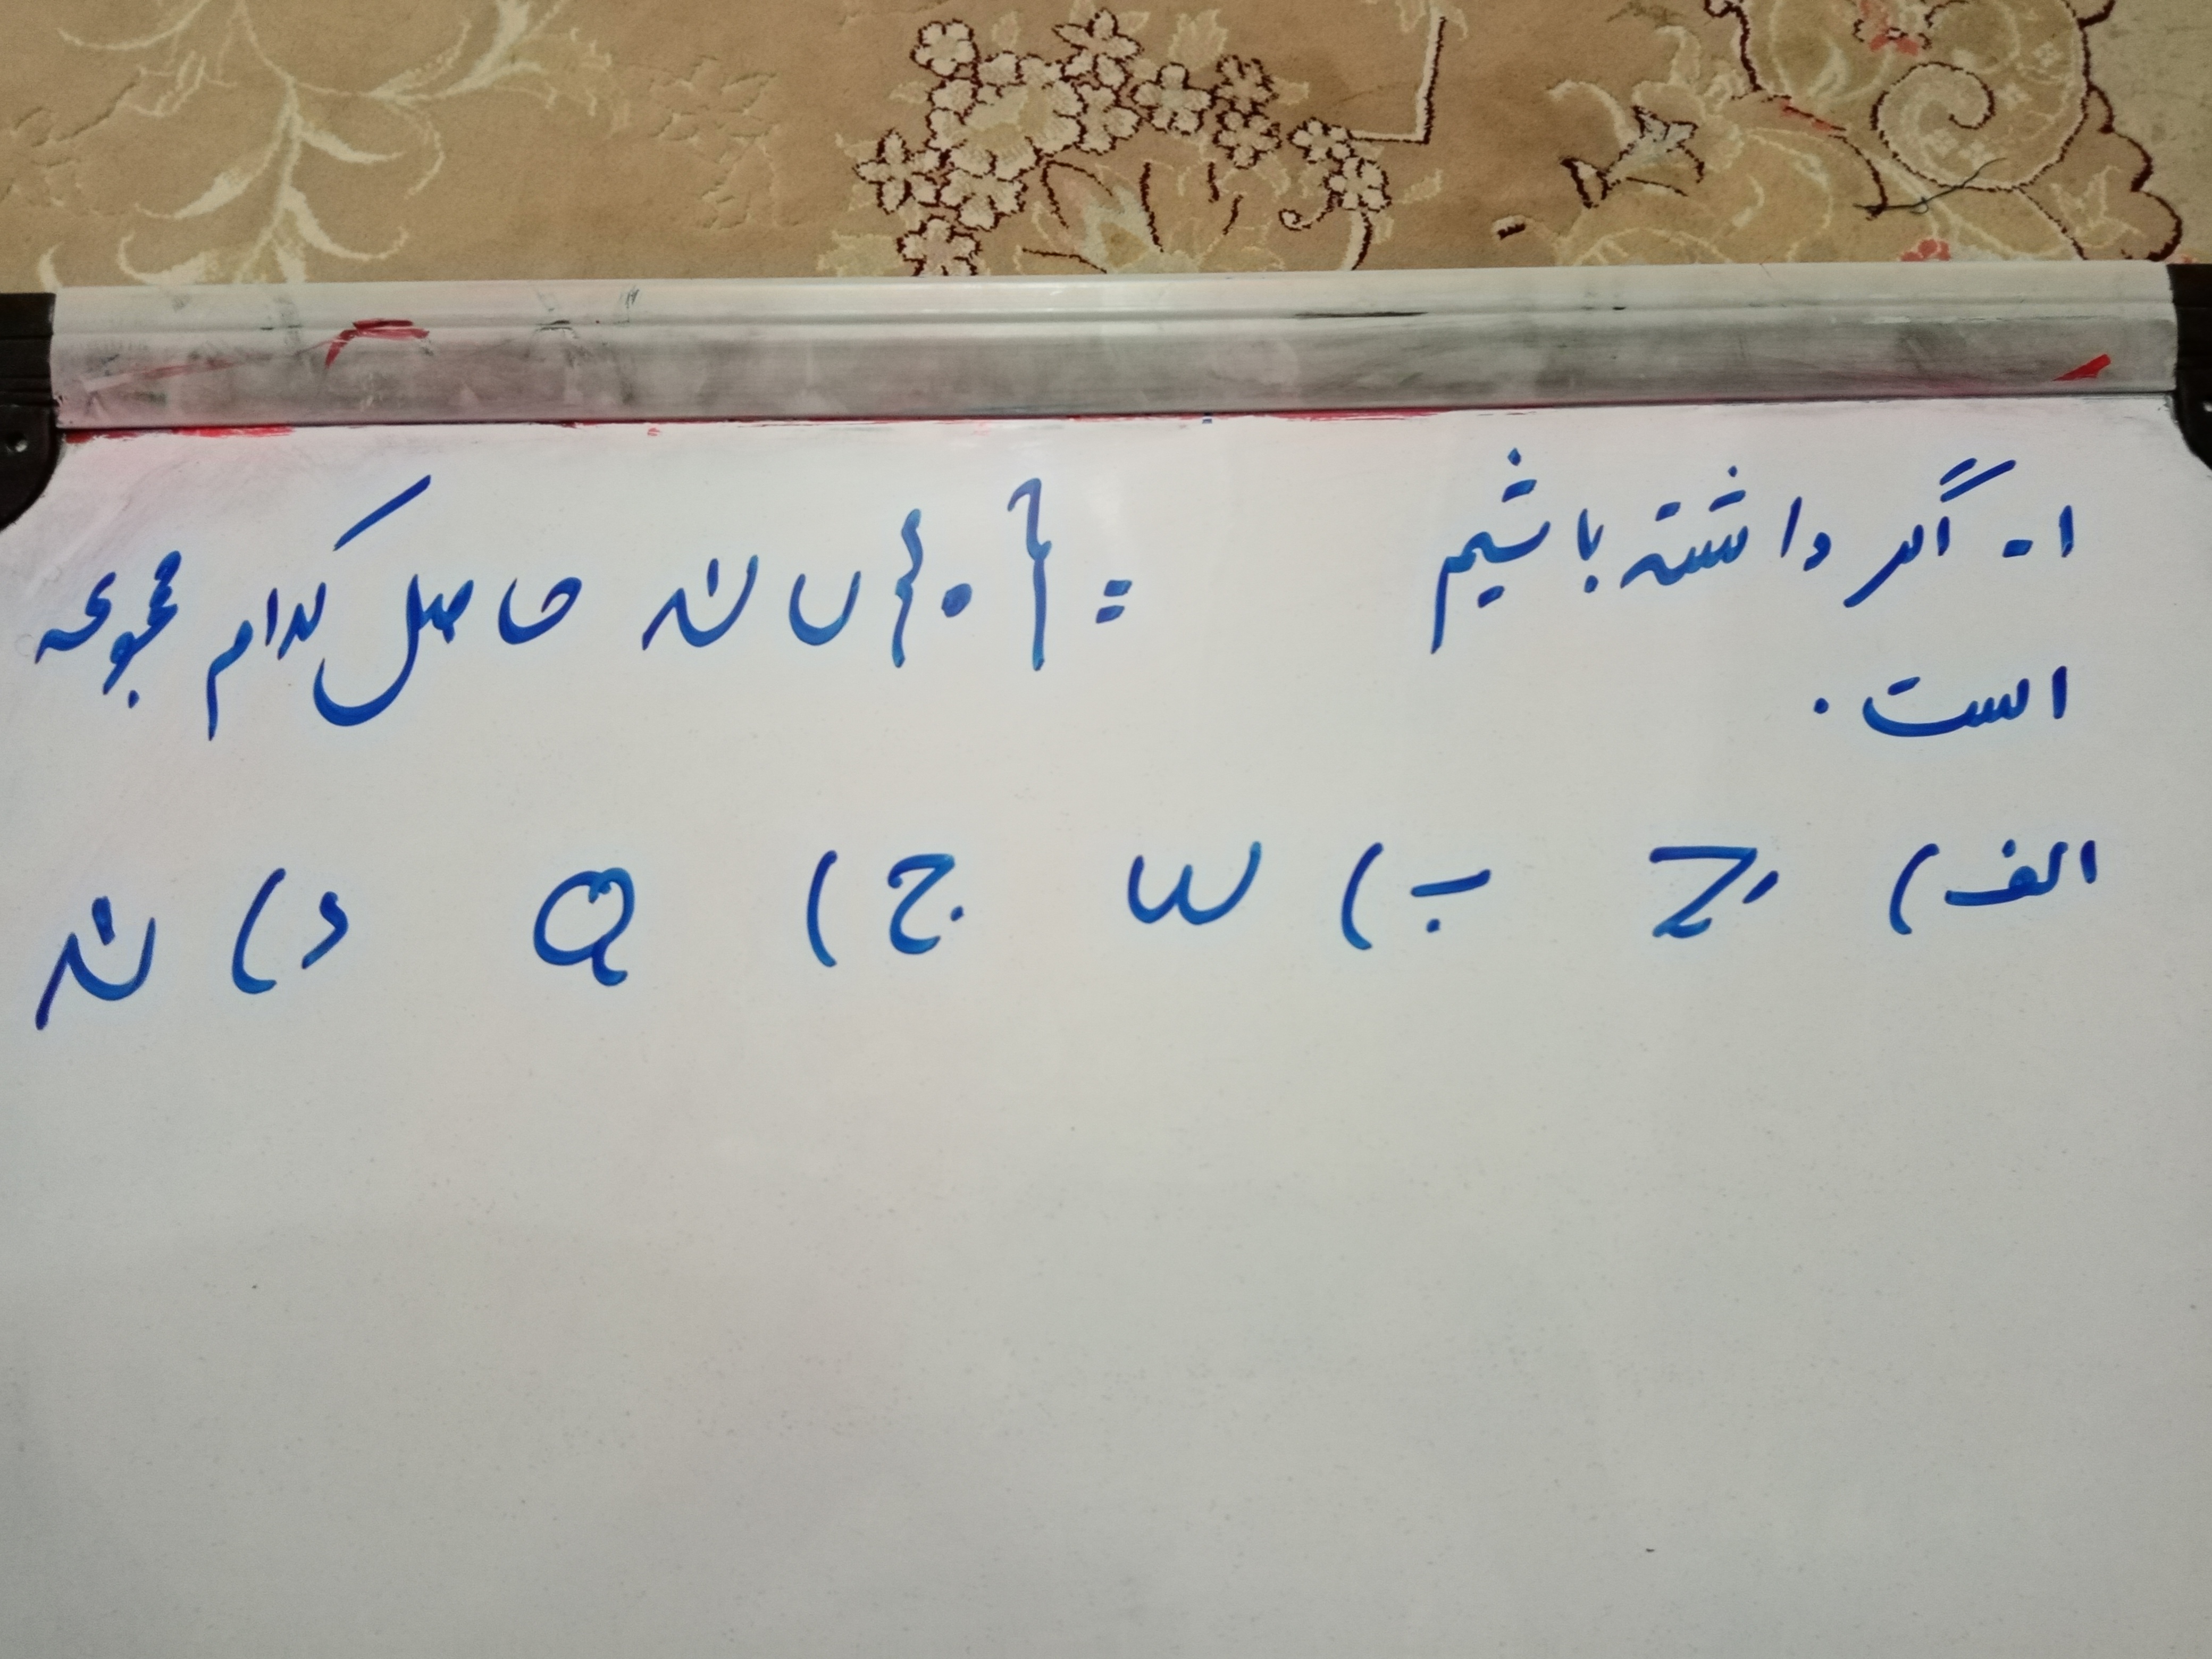 ۱- اگر داشته باشیم = {۰} ∪ ℕ حاصل کدام مجموعه
است.
الف) Z ب) W ج) Q د) ℕ